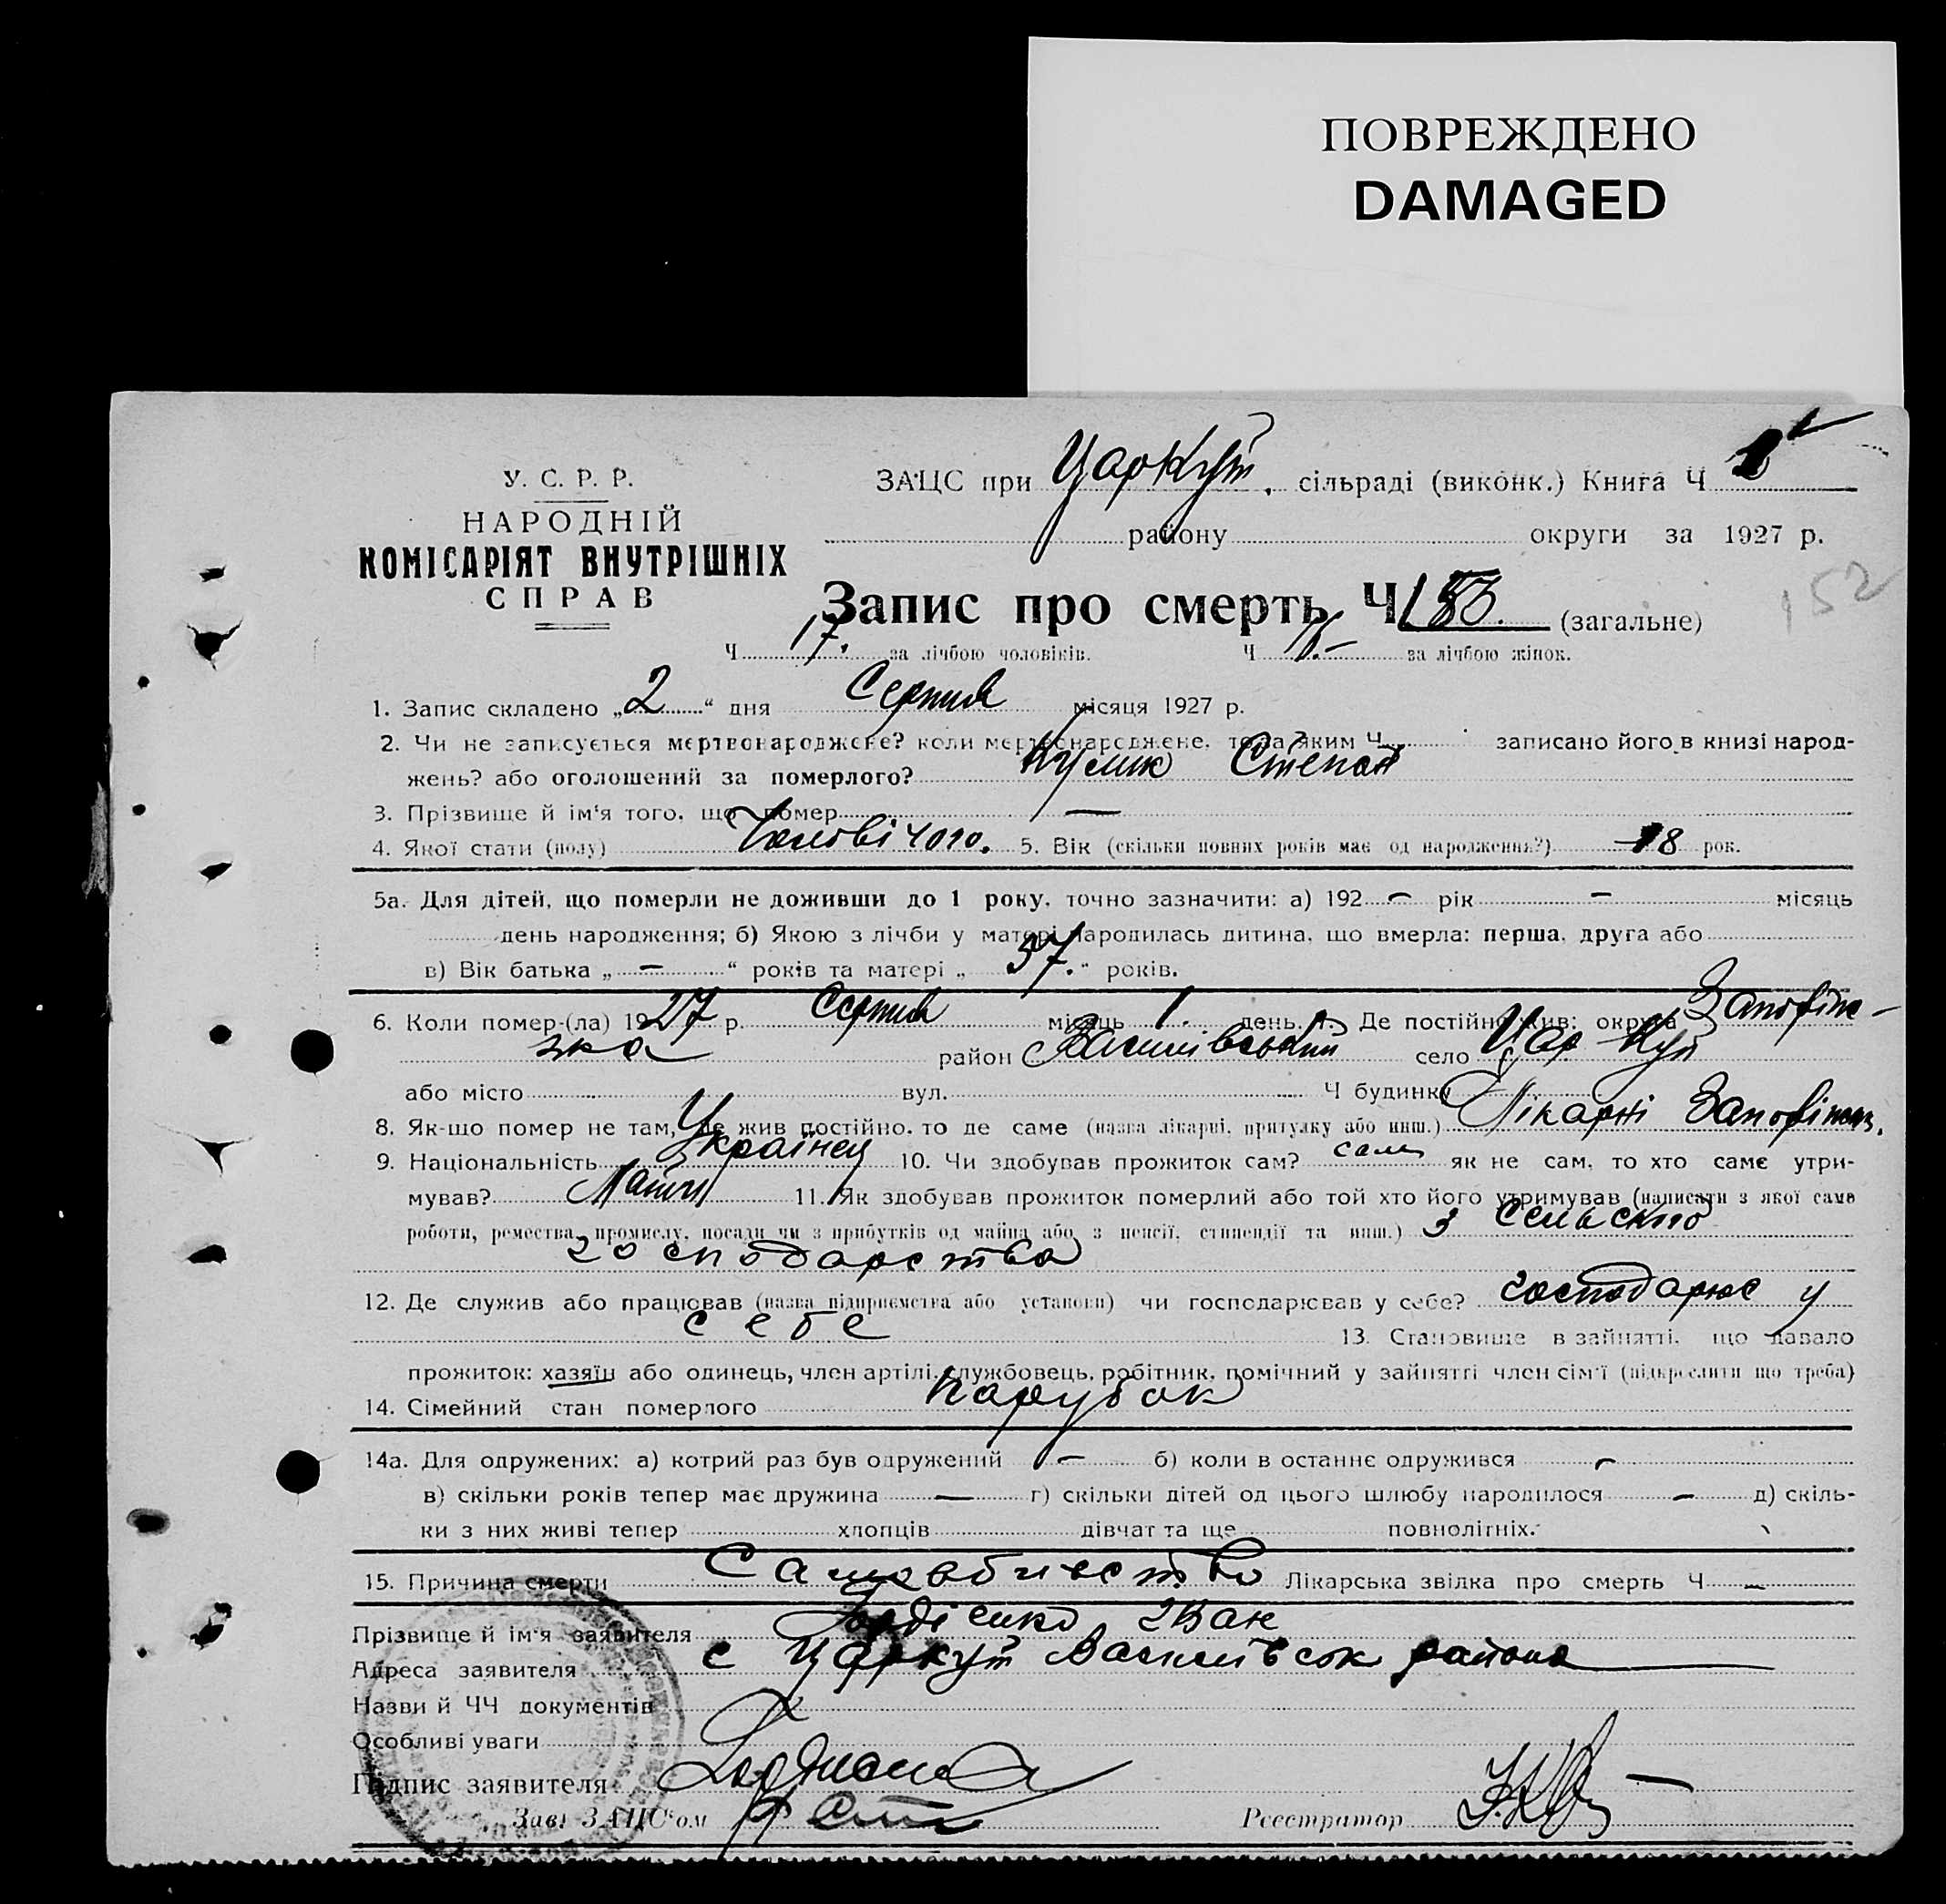 ПОВРЕЖДЕНО
DAMAGED
У. С. Р. Р.
НАРОДНІЙ
КОМІСАРІЯТ ВНУТРІШНІХ
СПРАВ
ЗАЦС при ЦарКут. сільраді (виконк.) Книга Ч
району округи за 1927 р.
Запис про смерть Ч (загальне)
152
Ч 17. за лічбою чоловіків. Ч за лічбою жінок.
1. Запис складено „ 2 “ дня Серпня місяця 1927 р.
2. Чи не записується мертвонароджене? коли мертвонароджене, то за яким Ч записано його в книзі народ-
жень? або оголошений за померлого? Кулик Степан
3. Прізвище й ім'я того, що помер —
4. Якої стати (полу) Чоловічого. 5. Вік (скільки повних років має од народження?) 18 рок.
5а. Для дітей, що померли не доживши до 1 року, точно зазначити: а) 192 – рік – місяць
день народження; б) Якою з лічби у матері народилась дитина, що вмерла: перша, друга або
в) Вік батька „ – “ років та матері „ 37. “ років.
6. Коли помер-(ла) 1927 р. Серпня місяць 1. день. 7. Де постійно жив: округа Запоріж-
зка район Василівський село Цар Кут
або місто вул. Ч будинку
8. Як-що помер не там, де жив постійно, то де саме (назва лікарні, притулку або инш.) Лікарні
9. Національність Українец 10. Чи здобував прожиток сам? сам як не сам, то хто саме утри-
мував? 11. Як здобував прожиток померлий або той хто його утримував (написати з якої саме
роботи, ремества, промислу, посади чи з прибутків од майна або з пенсії, стипендії та инш.) З сельского
господарства
12. Де служив або працював (назва підприємства або установи) чи господарював у себе? господарює у
себе 13. Становище в зайнятті, що давало
прожиток: хазяїн або одинець, член артілі, службовець, робітник, помічний у зайнятті член сім'ї (підкреслити що треба)
14. Сімейний стан померлого парубок
14а. Для одружених: а) котрий раз був одружений – б) коли в останнє одружився –
в) скільки років тепер має дружина — г) скільки дітей од цього шлюбу народилося – д) скіль-
ки з них живі тепер хлопців дівчат та ще повнолітніх.
15. Причина смерти Самовбивство Лікарська звідка про смерть Ч –
Прізвище й ім'я заявителя Іван
Адреса заявителя с Царкут Василівсок района
Назви й ЧЧ документів
Особливі уваги
Підпис заявителя
Зав. ЗАЦС'ом Реєстратор